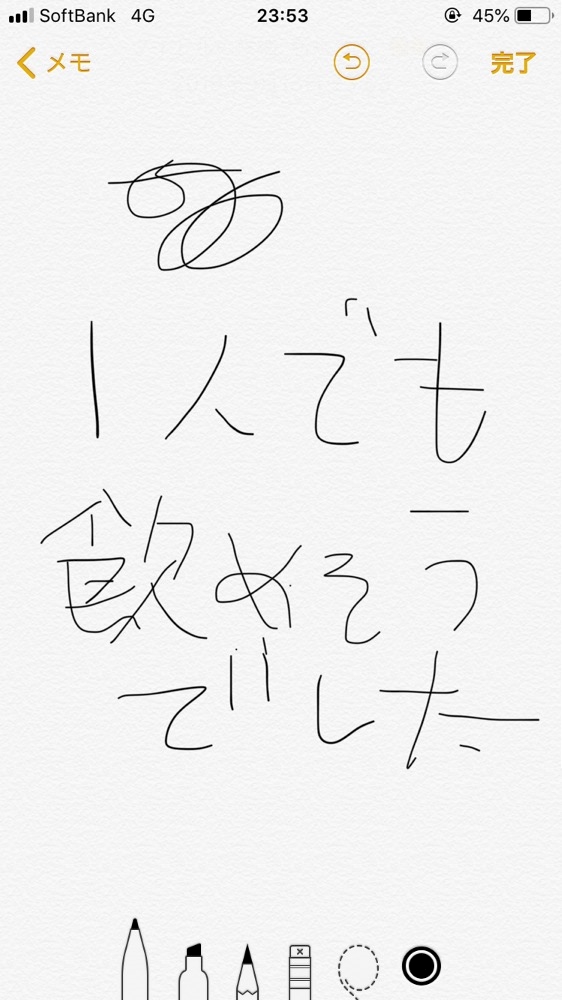 SoftBank 4G 23:53 45%
メモ 完了
1人でも
飲めそう
でした